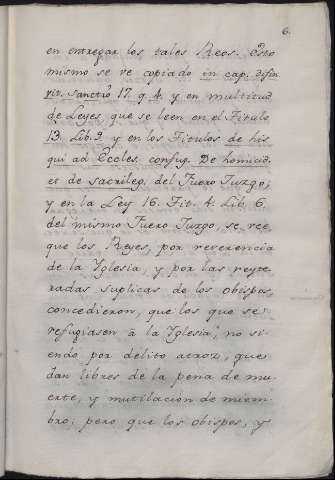 6.
en entregar los tales Reos. Esto
mismo se ve copiado in cap. difin
vit. Sanctio 17. q. 4. y en multitud
de Leyes, que se leen en el Titulo
13. Lib. 9. y en los Titulos de his
qui ad Eccles. confug. De homicid.
et de sacrileg. del Fuero Juzgo;
y en la Ley 16. Tit. 4. Lib. 6.
del mismo Fuero Juzgo, se vee,
que los Reyes, por reverencia
de la Yglesia, y por las reyte-
radas suplicas de los obispos,
concedieron, que los que se
refugiasen à la Yglesia, no si-
endo por delito atroz, que-
dan libres de la pena de mu-
erte, y mutilacion de miem-
bro; pero que los obispos, y